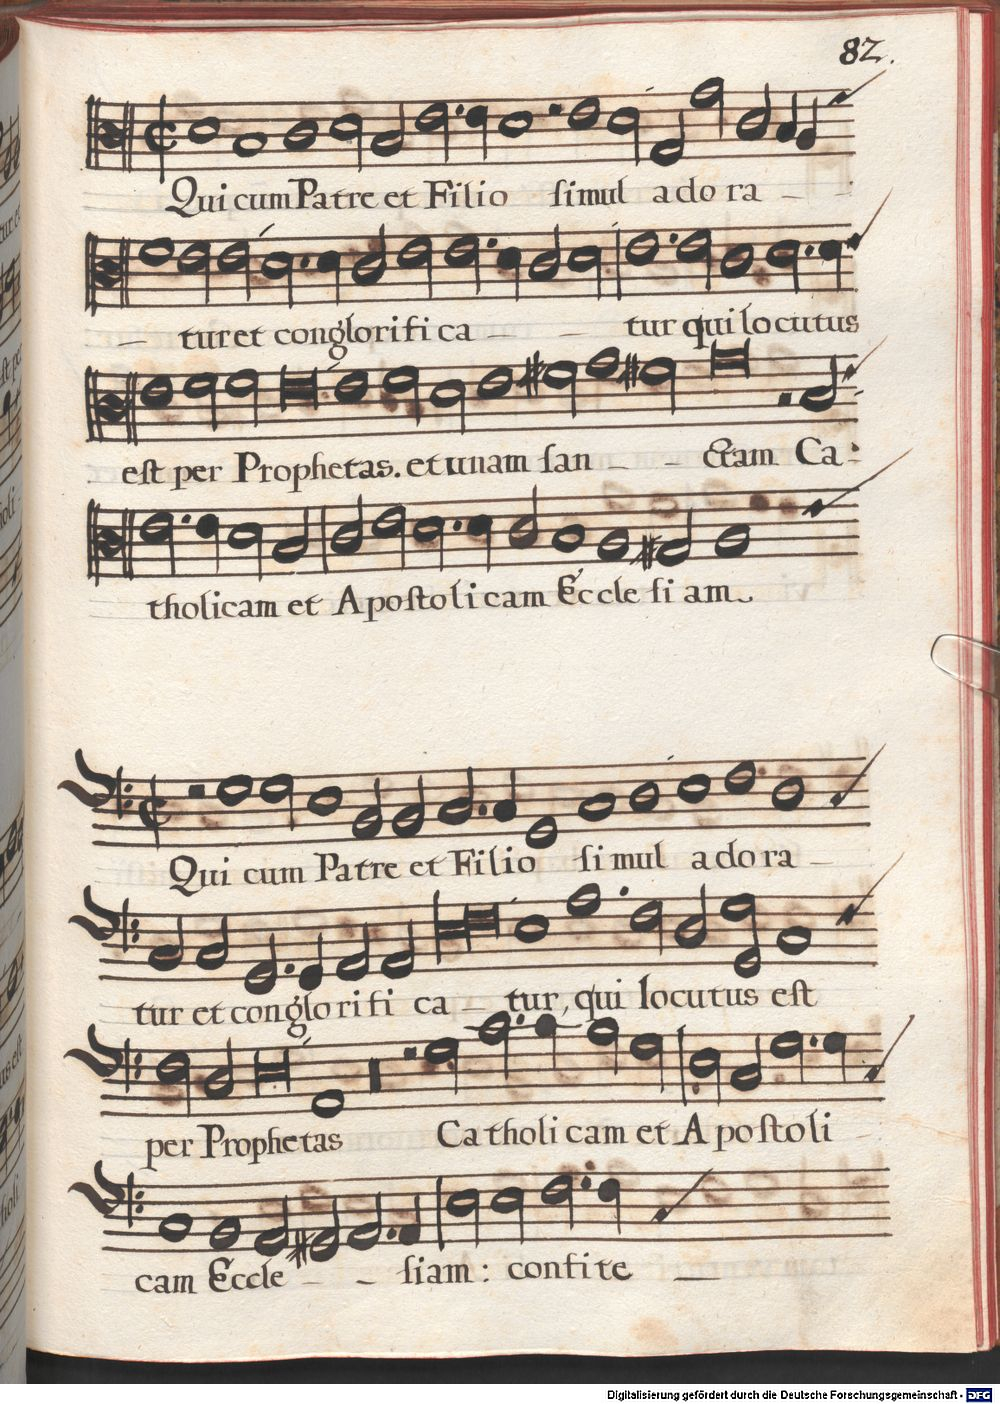 82.
Qui cum Patre et Filio ſimul adora -
- turet conglorifica - - tur qui locutus
eſt per Prophetas. et unam ſan - - ctam Ca:
tholicam et Apoſtolicam Eccleſiam.
Qui cum Patre et Filio ſimul adora -
tur et conglorifica - tur, qui locutus eſt
per Prophetas Catholicam et Apoſtoli
cam Eccle - - ſiam: confite -
Digitalisierung gefördert durch die Deutsche Forschungsgemeinschaft - DFG